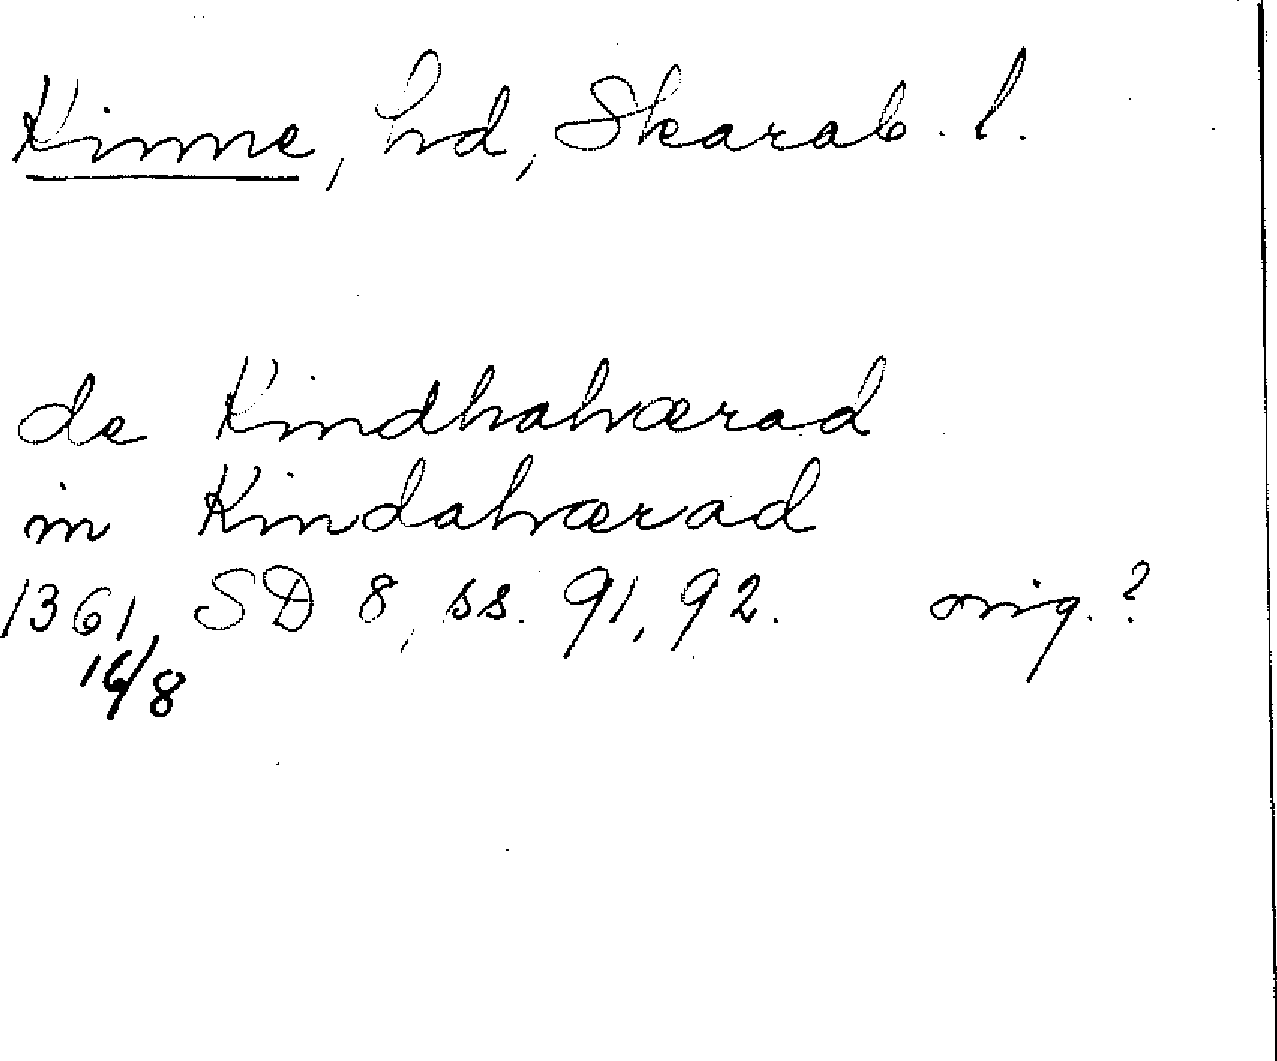 Kinne, hd, Skarab. l.
de Kindhahærad
in Kindahærad
1361, SD 8, ss. 91, 92. orig.?
16/8